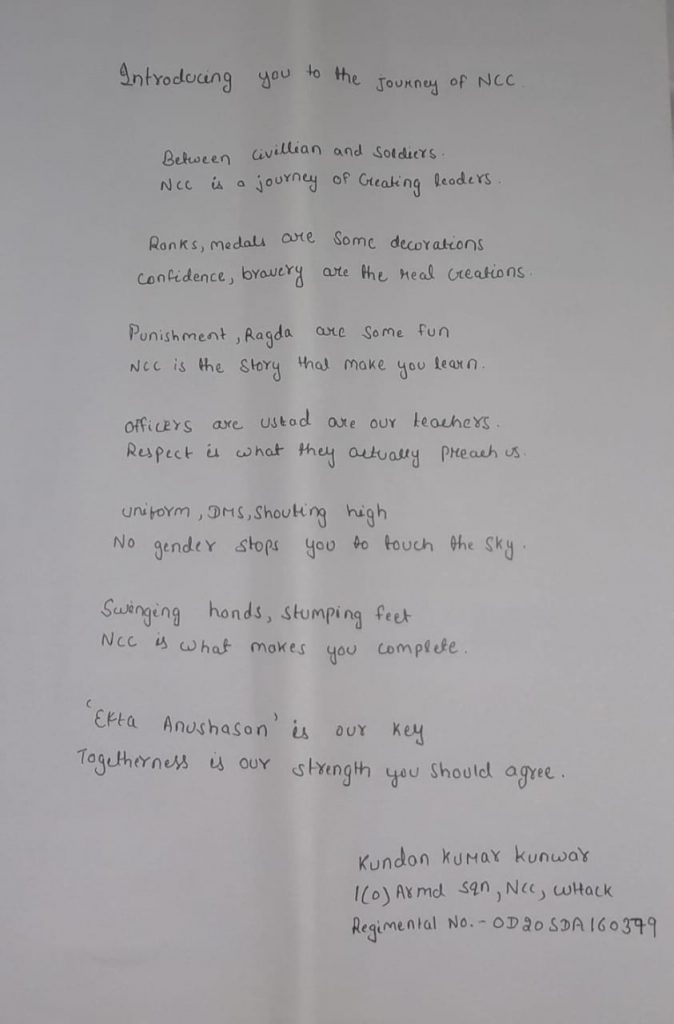 Introducing you to the Journey of NCC.
Between Civillian and Soldiers.
NCC is a journey of Creating leaders.
Ranks, medals are Some decorations
Confidence, bravery are the real creations.
Punishment, Ragda are some fun
NCC is the story that make you learn.
Officers are ustad are our teachers.
Respect is what they actually preach us.
Uniform, DMS, Shouting high
No gender stops you to touch the sky.
Swinging hands, stumping feet
NCC is what makes you complete.
'Ekta Anushasan' is our key
Togetherness is our strength you should agree.
Kundan Kumar Kunwar
1(O) Armd Sqn, NCC, Cuttack
Regimental No.- OD20SDA160379